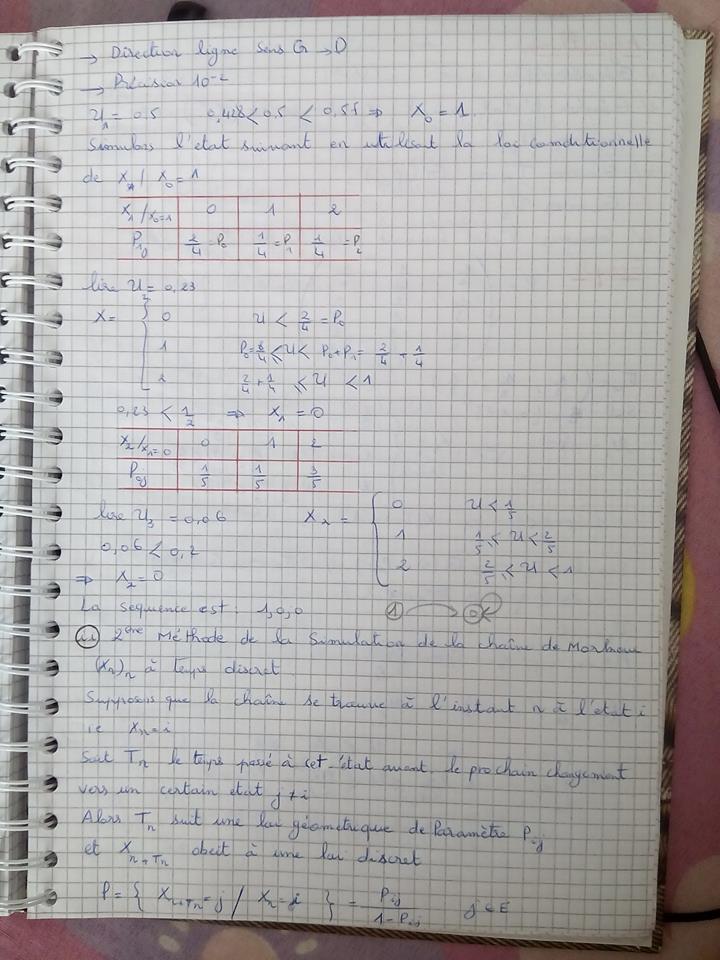 → Direction ligne sens G → D
→ Précision 10⁻²
U₁ = 0,5 0,428 < 0,5 < 0,55 ⇒ X₀ = 1.
Simulons l'état suivant en utilisant la loi conditionnelle
de X₁ / X₀ = 1
X₁/X₀=1 0 1 2
P₁j 2/4 = P₀ 1/4 = P₁ 1/4 = P₂
lire U₂ = 0,23
X = { 0 U < 2/4 = P₀
1 P₀ = 2/4 ≤ U < P₀+P₁ = 2/4 + 1/4
2 2/4 + 1/4 ≤ U < 1
0,23 < 1/2 ⇒ X₁ = 0
X₂/X₁=0 0 1 2
P₀j 1/5 1/5 3/5
lire U₃ = 0,06 X₂ = { 0 U < 1/5
0,06 < 0,2 1 1/5 ≤ U < 2/5
⇒ X₂ = 0 2 2/5 ≤ U < 1
La séquence est : 1,0,0 1 0
ii 2ème Méthode de la Simulation de la chaîne de Markov
(Xn)n à temps discret
Supposons que la chaîne se trouve à l'instant n à l'état i
ie Xn = i
Soit Tn le temps passé à cet état avant le prochain changement
vers un certain état j ≠ i
Alors Tn suit une loi géométrique de Paramètre Pij
et X n+Tn obéit à une loi discret
P = { Xn+Tn = j / Xn = i } = Pij / 1 - Pij j ∈ E